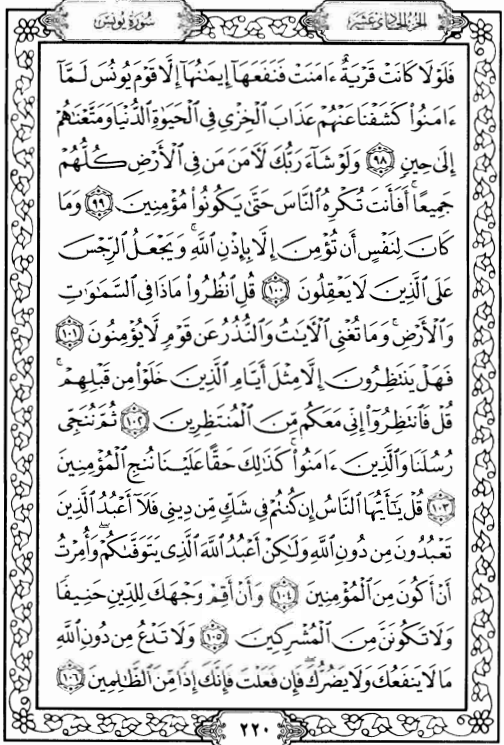 سُورَةُ يُونُسَ
الجُزْءُ الحَادِي عَشَرَ
فَلَوْلَا كَانَتْ قَرْيَةٌ ءَامَنَتْ فَنَفَعَهَآ إِيمَٰنُهَآ إِلَّا قَوْمَ يُونُسَ لَمَّآ
ءَامَنُوا۟ كَشَفْنَا عَنْهُمْ عَذَابَ ٱلْخِزْىِ فِى ٱلْحَيَوٰةِ ٱلدُّنْيَا وَمَتَّعْنَٰهُمْ
إِلَىٰ حِينٍ ٩٨ وَلَوْ شَآءَ رَبُّكَ لَءَامَنَ مَن فِى ٱلْأَرْضِ كُلُّهُمْ
جَمِيعًا ۚ أَفَأَنتَ تُكْرِهُ ٱلنَّاسَ حَتَّىٰ يَكُونُوا۟ مُؤْمِنِينَ ٩٩ وَمَا
كَانَ لِنَفْسٍ أَن تُؤْمِنَ إِلَّا بِإِذْنِ ٱللَّهِ ۚ وَيَجْعَلُ ٱلرِّجْسَ
عَلَى ٱلَّذِينَ لَا يَعْقِلُونَ ١٠٠ قُلِ ٱنظُرُوا۟ مَاذَا فِى ٱلسَّمَٰوَٰتِ
وَٱلْأَرْضِ ۚ وَمَا تُغْنِى ٱلْءَايَٰتُ وَٱلنُّذُرُ عَن قَوْمٍ لَّا يُؤْمِنُونَ ١٠١
فَهَلْ يَنتَظِرُونَ إِلَّا مِثْلَ أَيَّامِ ٱلَّذِينَ خَلَوْا۟ مِن قَبْلِهِمْ ۚ
قُلْ فَٱنتَظِرُوٓا۟ إِنِّى مَعَكُم مِّنَ ٱلْمُنتَظِرِينَ ١٠٢ ثُمَّ نُنَجِّى
رُسُلَنَا وَٱلَّذِينَ ءَامَنُوا۟ ۚ كَذَٰلِكَ حَقًّا عَلَيْنَا نُنجِ ٱلْمُؤْمِنِينَ
١٠٣ قُلْ يَٰٓأَيُّهَا ٱلنَّاسُ إِن كُنتُمْ فِى شَكٍّ مِّن دِينِى فَلَآ أَعْبُدُ ٱلَّذِينَ
تَعْبُدُونَ مِن دُونِ ٱللَّهِ وَلَٰكِنْ أَعْبُدُ ٱللَّهَ ٱلَّذِى يَتَوَفَّىٰكُمْ ۖ وَأُمِرْتُ
أَنْ أَكُونَ مِنَ ٱلْمُؤْمِنِينَ ١٠٤ وَأَنْ أَقِمْ وَجْهَكَ لِلدِّينِ حَنِيفًا
وَلَا تَكُونَنَّ مِنَ ٱلْمُشْرِكِينَ ١٠٥ وَلَا تَدْعُ مِن دُونِ ٱللَّهِ
مَا لَا يَنفَعُكَ وَلَا يَضُرُّكَ ۖ فَإِن فَعَلْتَ فَإِنَّكَ إِذًا مِّنَ ٱلظَّٰلِمِينَ ١٠٦
٢٢٠